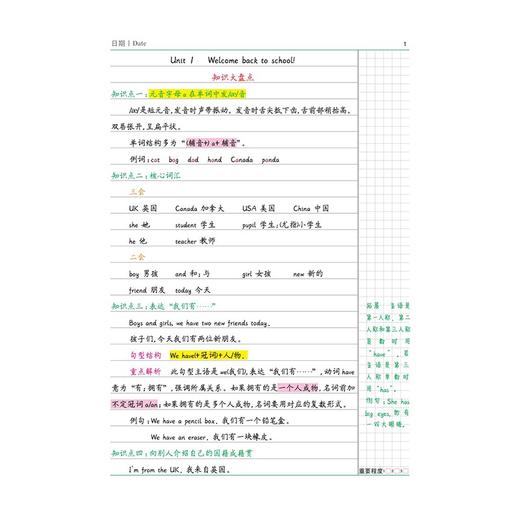 日期 | Date
1
Unit 1 Welcome back to school!
知识大盘点
知识点一：元音字母 a 在单词中发/æ/音
/æ/是短元音，发音时声带振动。发音时舌尖抵下齿，舌前部稍抬高，
双唇张开，呈扁平状。
单词结构多为“(辅音+) a+ 辅音”。
例词：cat bag dad hand Canada panda
知识点二：核心词汇
三会
UK 英国 Canada 加拿大 USA 美国 China 中国
she 她 student 学生 pupil 学生；(尤指)小学生
he 他 teacher 教师
二会
boy 男孩 and 和；与 girl 女孩 new 新的
friend 朋友 today 今天
知识点三：表达“我们有……”
Boys and girls, we have two new friends today.
孩子们，今天我们有两位新朋友。
句型结构 We have(+冠词)+人/物.
重点解析 此句型主语是 we(我们)，表达“我们有……”，动词have
意为“有；拥有”，强调所属关系。如果拥有的是一个人或物，名词前加
不定冠词 a/an；如果拥有的是多个人或物，名词要用对应的复数形式。
例句：We have a pencil box. 我们有一个铅笔盒。
We have an eraser. 我们有一块橡皮。
知识点四：向别人介绍自己的国籍或籍贯
I'm from the UK. 我来自英国。
拓展 主语是
第一人称、第二
人称和第三人称
复数时用
“have”，若
主语是第三
人称单数时
用“has”。
例句：She has
big eyes. 她有
一双大眼睛。
重要程度 1 2 3